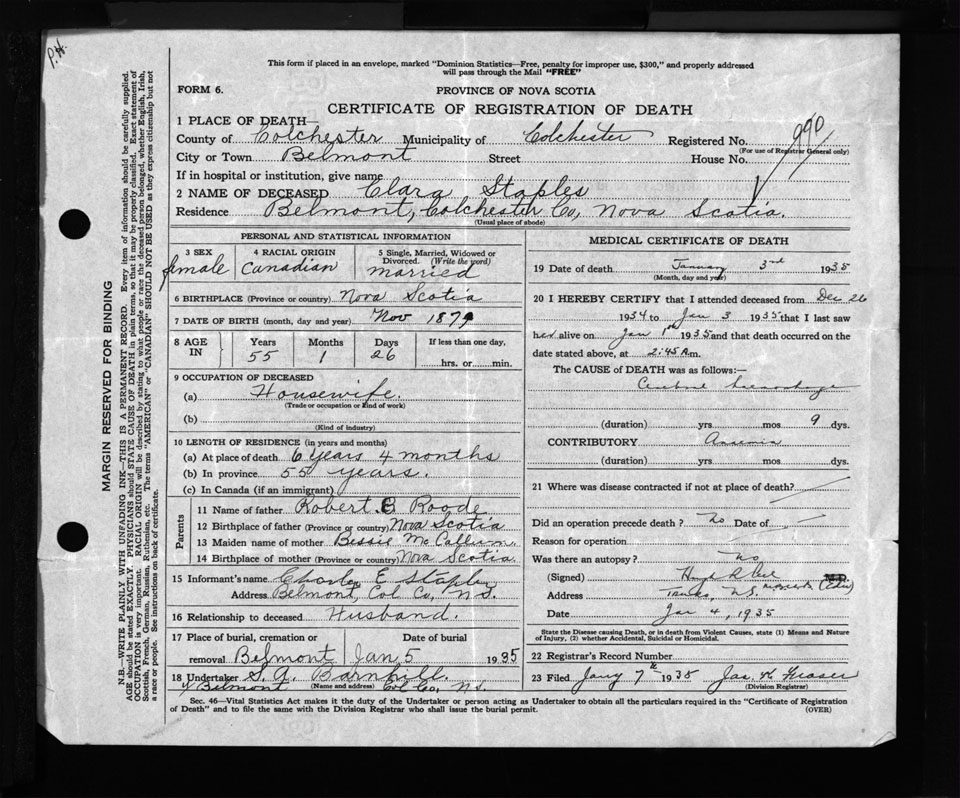 P.H.
This form if placed in an envelope, marked "Dominion Statistics—Free, penalty for improper use, $300," and properly addressed
will pass through the Mail "FREE"
FORM 6.
PROVINCE OF NOVA SCOTIA
CERTIFICATE OF REGISTRATION OF DEATH
1 PLACE OF DEATH—
County of Colchester Municipality of Colchester Registered No. 990
(For use of Registrar General only)
City or Town Belmont Street House No.
If in hospital or institution, give name
2 NAME OF DECEASED Clara Staples
Residence Belmont, Colchester Co, Nova Scotia.
(Usual place of abode)
PERSONAL AND STATISTICAL INFORMATION
3 SEX female
4 RACIAL ORIGIN Canadian
5 Single, Married, Widowed or
Divorced. (Write the word)
married
6 BIRTHPLACE (Province or country) Nova Scotia
7 DATE OF BIRTH (month, day and year) Nov 1879
8 AGE IN
Years Months Days If less than one day,
55 1 26 hrs. or min.
9 OCCUPATION OF DECEASED
(a) Housewife.
(Trade or occupation or kind of work)
(b)
(Kind of industry)
10 LENGTH OF RESIDENCE (in years and months)
(a) At place of death 6 years 4 months
(b) In province 55 years.
(c) In Canada (if an immigrant)
Parents
11 Name of father Robert Roode
12 Birthplace of father (Province or country) Nova Scotia
13 Maiden name of mother Bessie McCallum.
14 Birthplace of mother (Province or country) Nova Scotia.
15 Informant's name Charles E Staples
Address Belmont, Col Co, N.S.
16 Relationship to deceased Husband.
17 Place of burial, cremation or Date of burial
removal Belmont Jan 5 1935
18 Undertaker S. A. Barnhill.
Belmont (Name and address) Col Co, N.S.
MEDICAL CERTIFICATE OF DEATH
19 Date of death January 3rd 1935
(Month, day and year)
20 I HEREBY CERTIFY that I attended deceased from Dec 26
1934 to Jan 3 1935 that I last saw
her alive on Jan 1935 and that death occurred on the
date stated above, at 2:45 A.m.
The CAUSE of DEATH was as follows:—
Cerebral haemorrhage
(duration) yrs mos 9 dys.
CONTRIBUTORY Anaemia
(duration) yrs mos dys.
21 Where was disease contracted if not at place of death?
Did an operation precede death? No Date of
Reason for operation
Was there an autopsy? No
(Signed)
Address N.S.
Date Jan 4, 1935
State the Disease causing Death, or in death from Violent Causes, state (1) Means and Nature
of Injury, (2) whether Accidental, Suicidal or Homicidal.
22 Registrar's Record Number
23 Filed Jany 7th 1935 Jas K Fraser
(Division Registrar)
Sec. 46—Vital Statistics Act makes it the duty of the Undertaker or person acting as Undertaker to obtain all the particulars required in the "Certificate of Registration
of Death" and to file the same with the Division Registrar who shall issue the burial permit.
(OVER)
MARGIN RESERVED FOR BINDING
N.B.—WRITE PLAINLY WITH UNFADING INK—THIS IS A PERMANENT RECORD. Every item of information should be carefully supplied.
AGE should be stated EXACTLY. PHYSICIANS should STATE CAUSE OF DEATH in plain terms, so that it may be properly classified. Exact statement of
OCCUPATION is very important. RACIAL ORIGIN will be described by stating to what people or race the deceased person belonged, whether English, Irish,
Scottish, French, German, Russian, Ruthenian, etc. The terms "AMERICAN" or "CANADIAN" SHOULD NOT BE USED as they express citizenship but not
a race or people. See instructions on back of certificate.